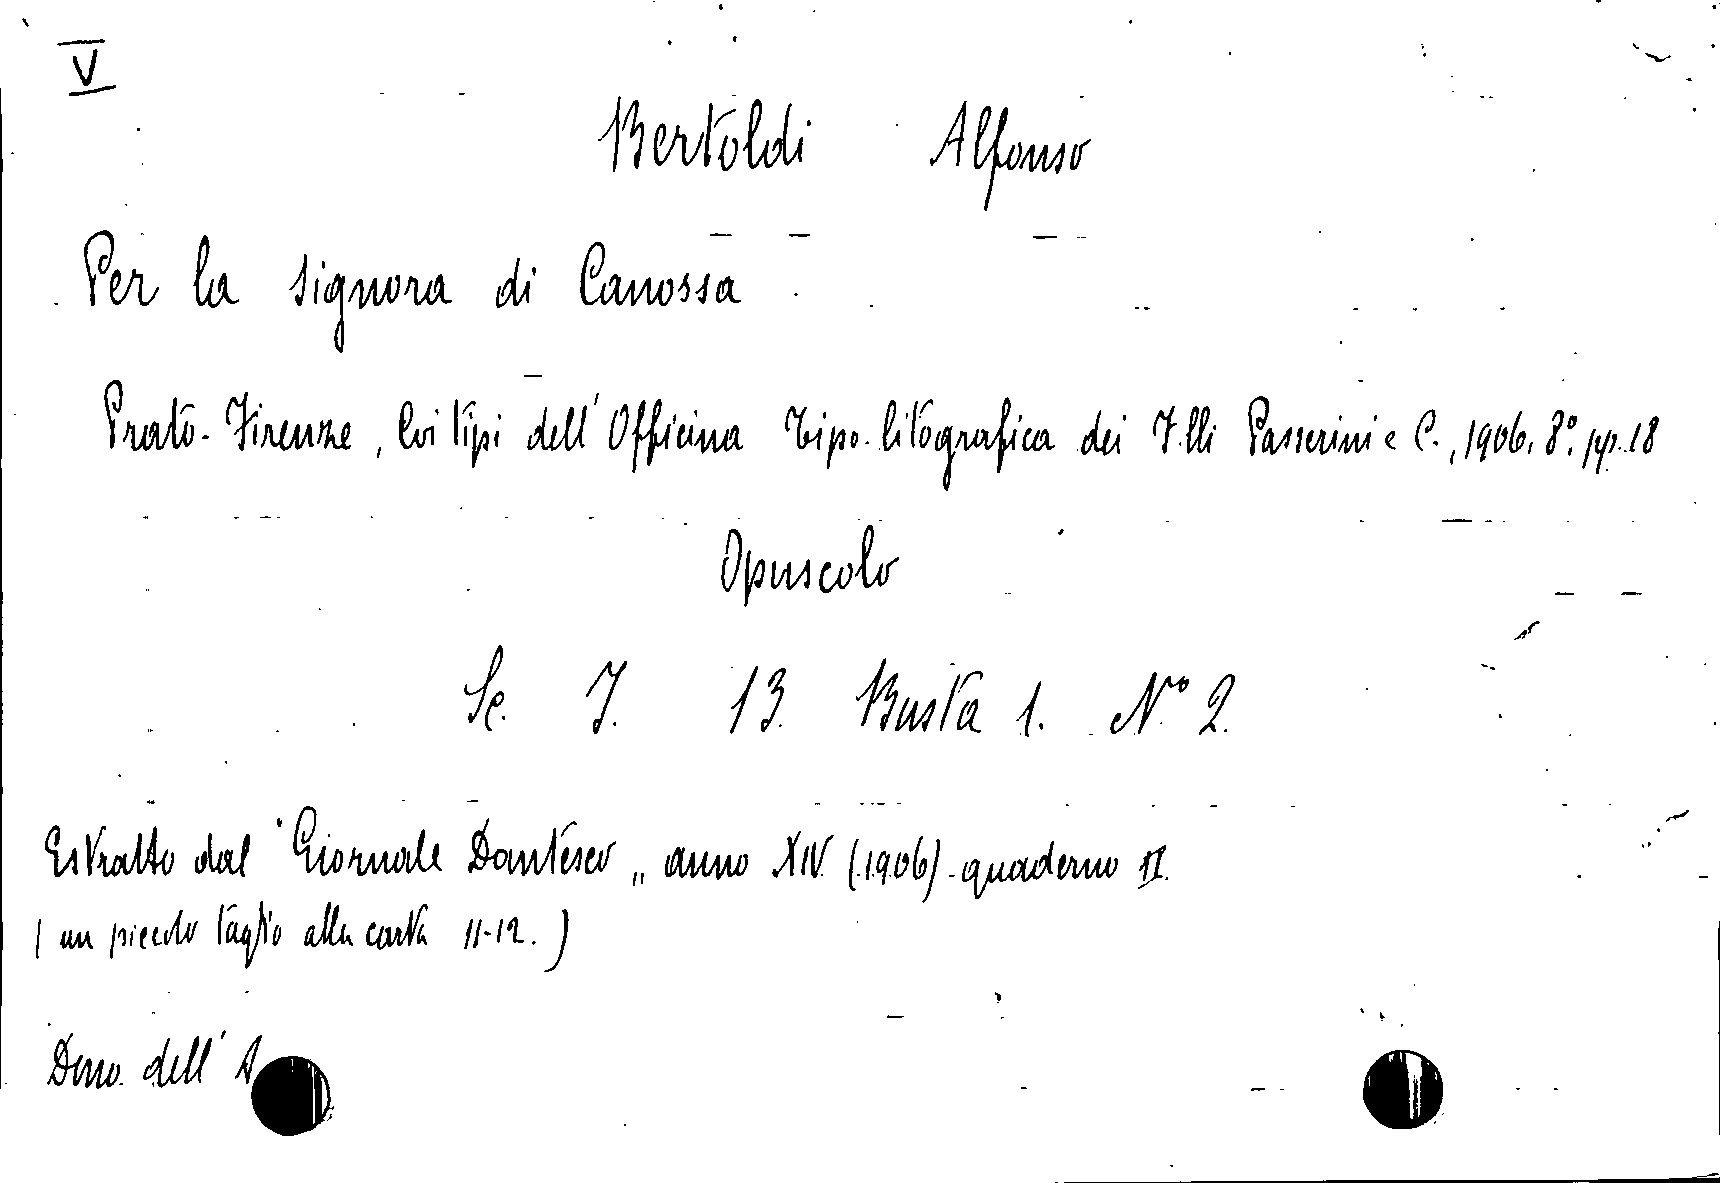 V
Bertoldi Alfonso
Per la signora di Canossa
Prato-Firenze, Coi tipi dell'Officina Tipo-litografica dei F.lli Passerini e C., 1906. 8°. pp. 18
Opuscolo
Sc. I. 13. Busta 1. N° 2.
Estratto dal "Giornale Dantesco„ anno XIV (1906) - quaderno II.
(un piccolo taglio alla carta 11-12.)
Dono dell'A